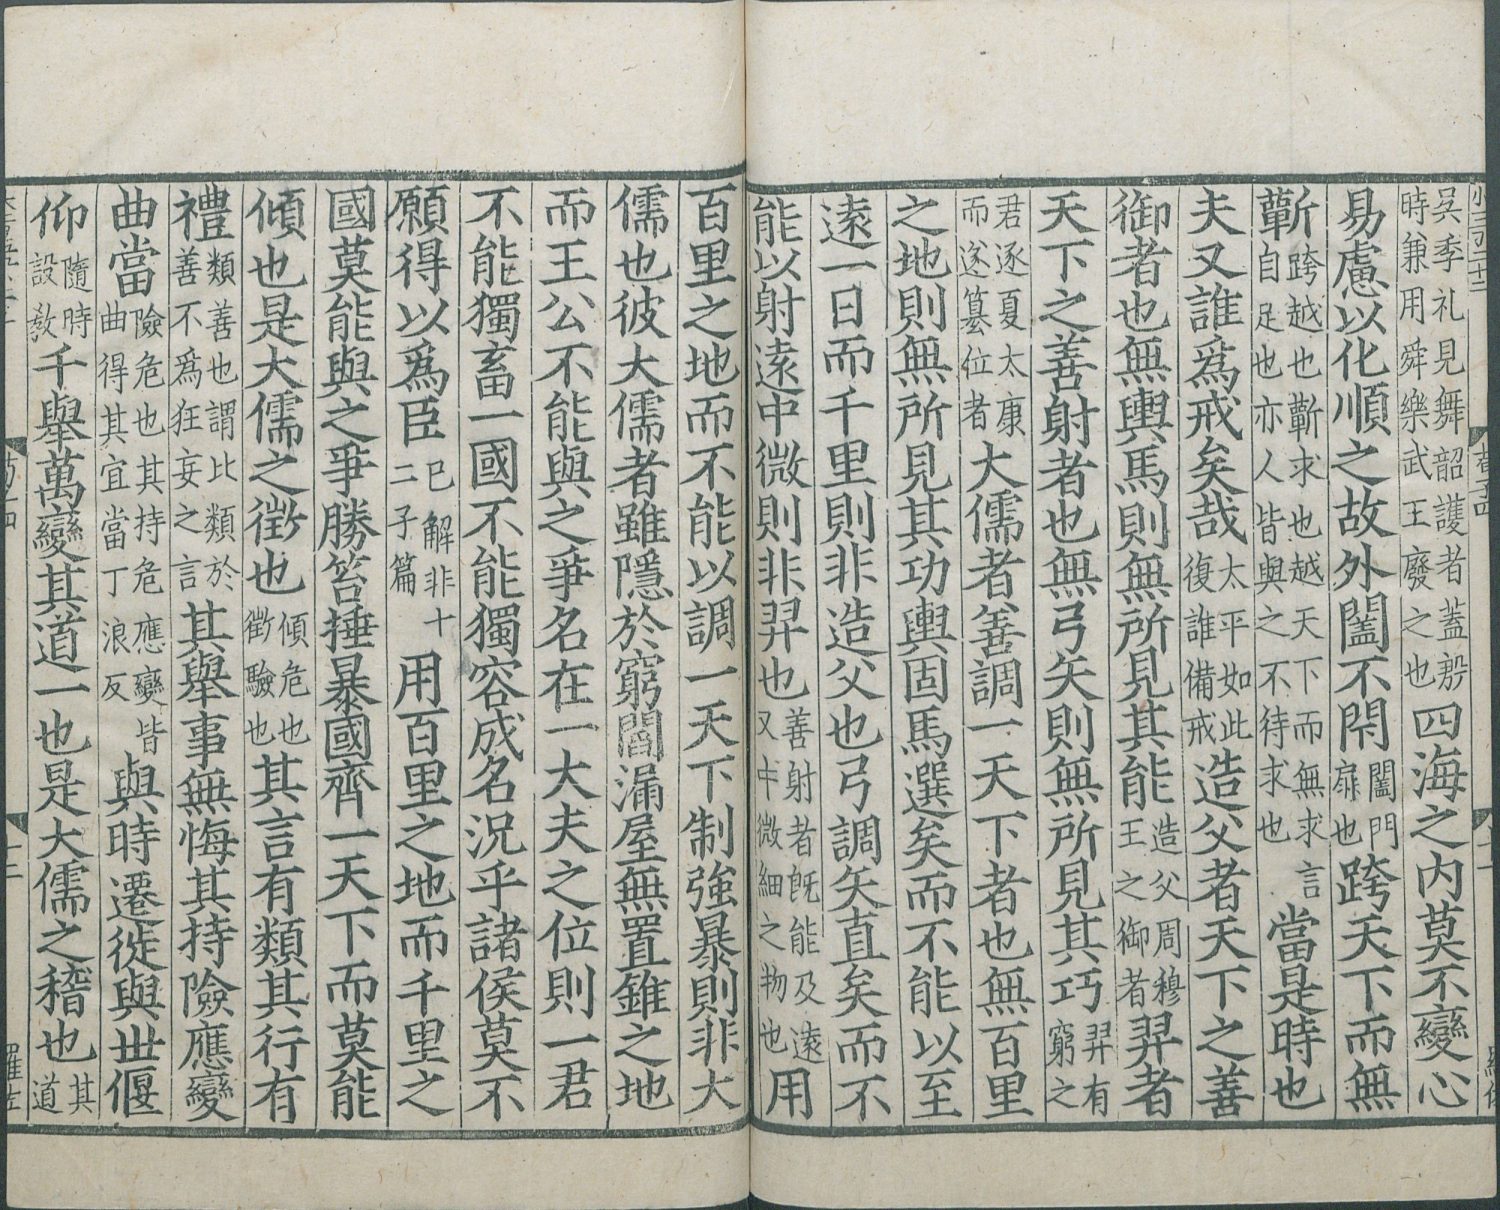 吴季礼見舞韶護者蓋殷時兼用舜樂武王廢之也四海之内莫不變心
易慮以化順之故外闔不閇闔門扉也跨天下而無
蘄跨越也蘄求也越天下而無求言自足也亦人皆與之不待求也當是時也
夫又誰爲戒矣哉太平如此復誰備戒造父者天下之善
御者也無輿馬則無所見其能造父周穆王之御者羿者
天下之善射者也無弓矢則無所見其巧羿有窮之
君逐夏太康而遂篡位者大儒者善調一天下者也無百里
之地則無所見其功輿固馬選矣而不能以至
逺一日而千里則非造父也弓調矢直矣而不
能以射逺中微則非羿也善射者既能及逺又中微細之物也用
百里之地而不能以調一天下制強暴則非大
儒也彼大儒者雖隱於窮閻漏屋無置錐之地
而王公不能與之爭名在一大夫之位則一君
不能獨畜一國不能獨容成名況乎諸侯莫不
願得以爲臣已解非十二子篇用百里之地而千里之
國莫能與之爭勝笞捶暴國齊一天下而莫能
傾也是大儒之徵也傾危也徵驗也其言有類其行有
禮類善也謂比類於善不爲狂妄之言其舉事無悔其持險應變
曲當險危也其持危應變皆曲得其宜當丁浪反與時遷徙與世偃
仰隨時設教千舉萬變其道一也是大儒之稽也其道